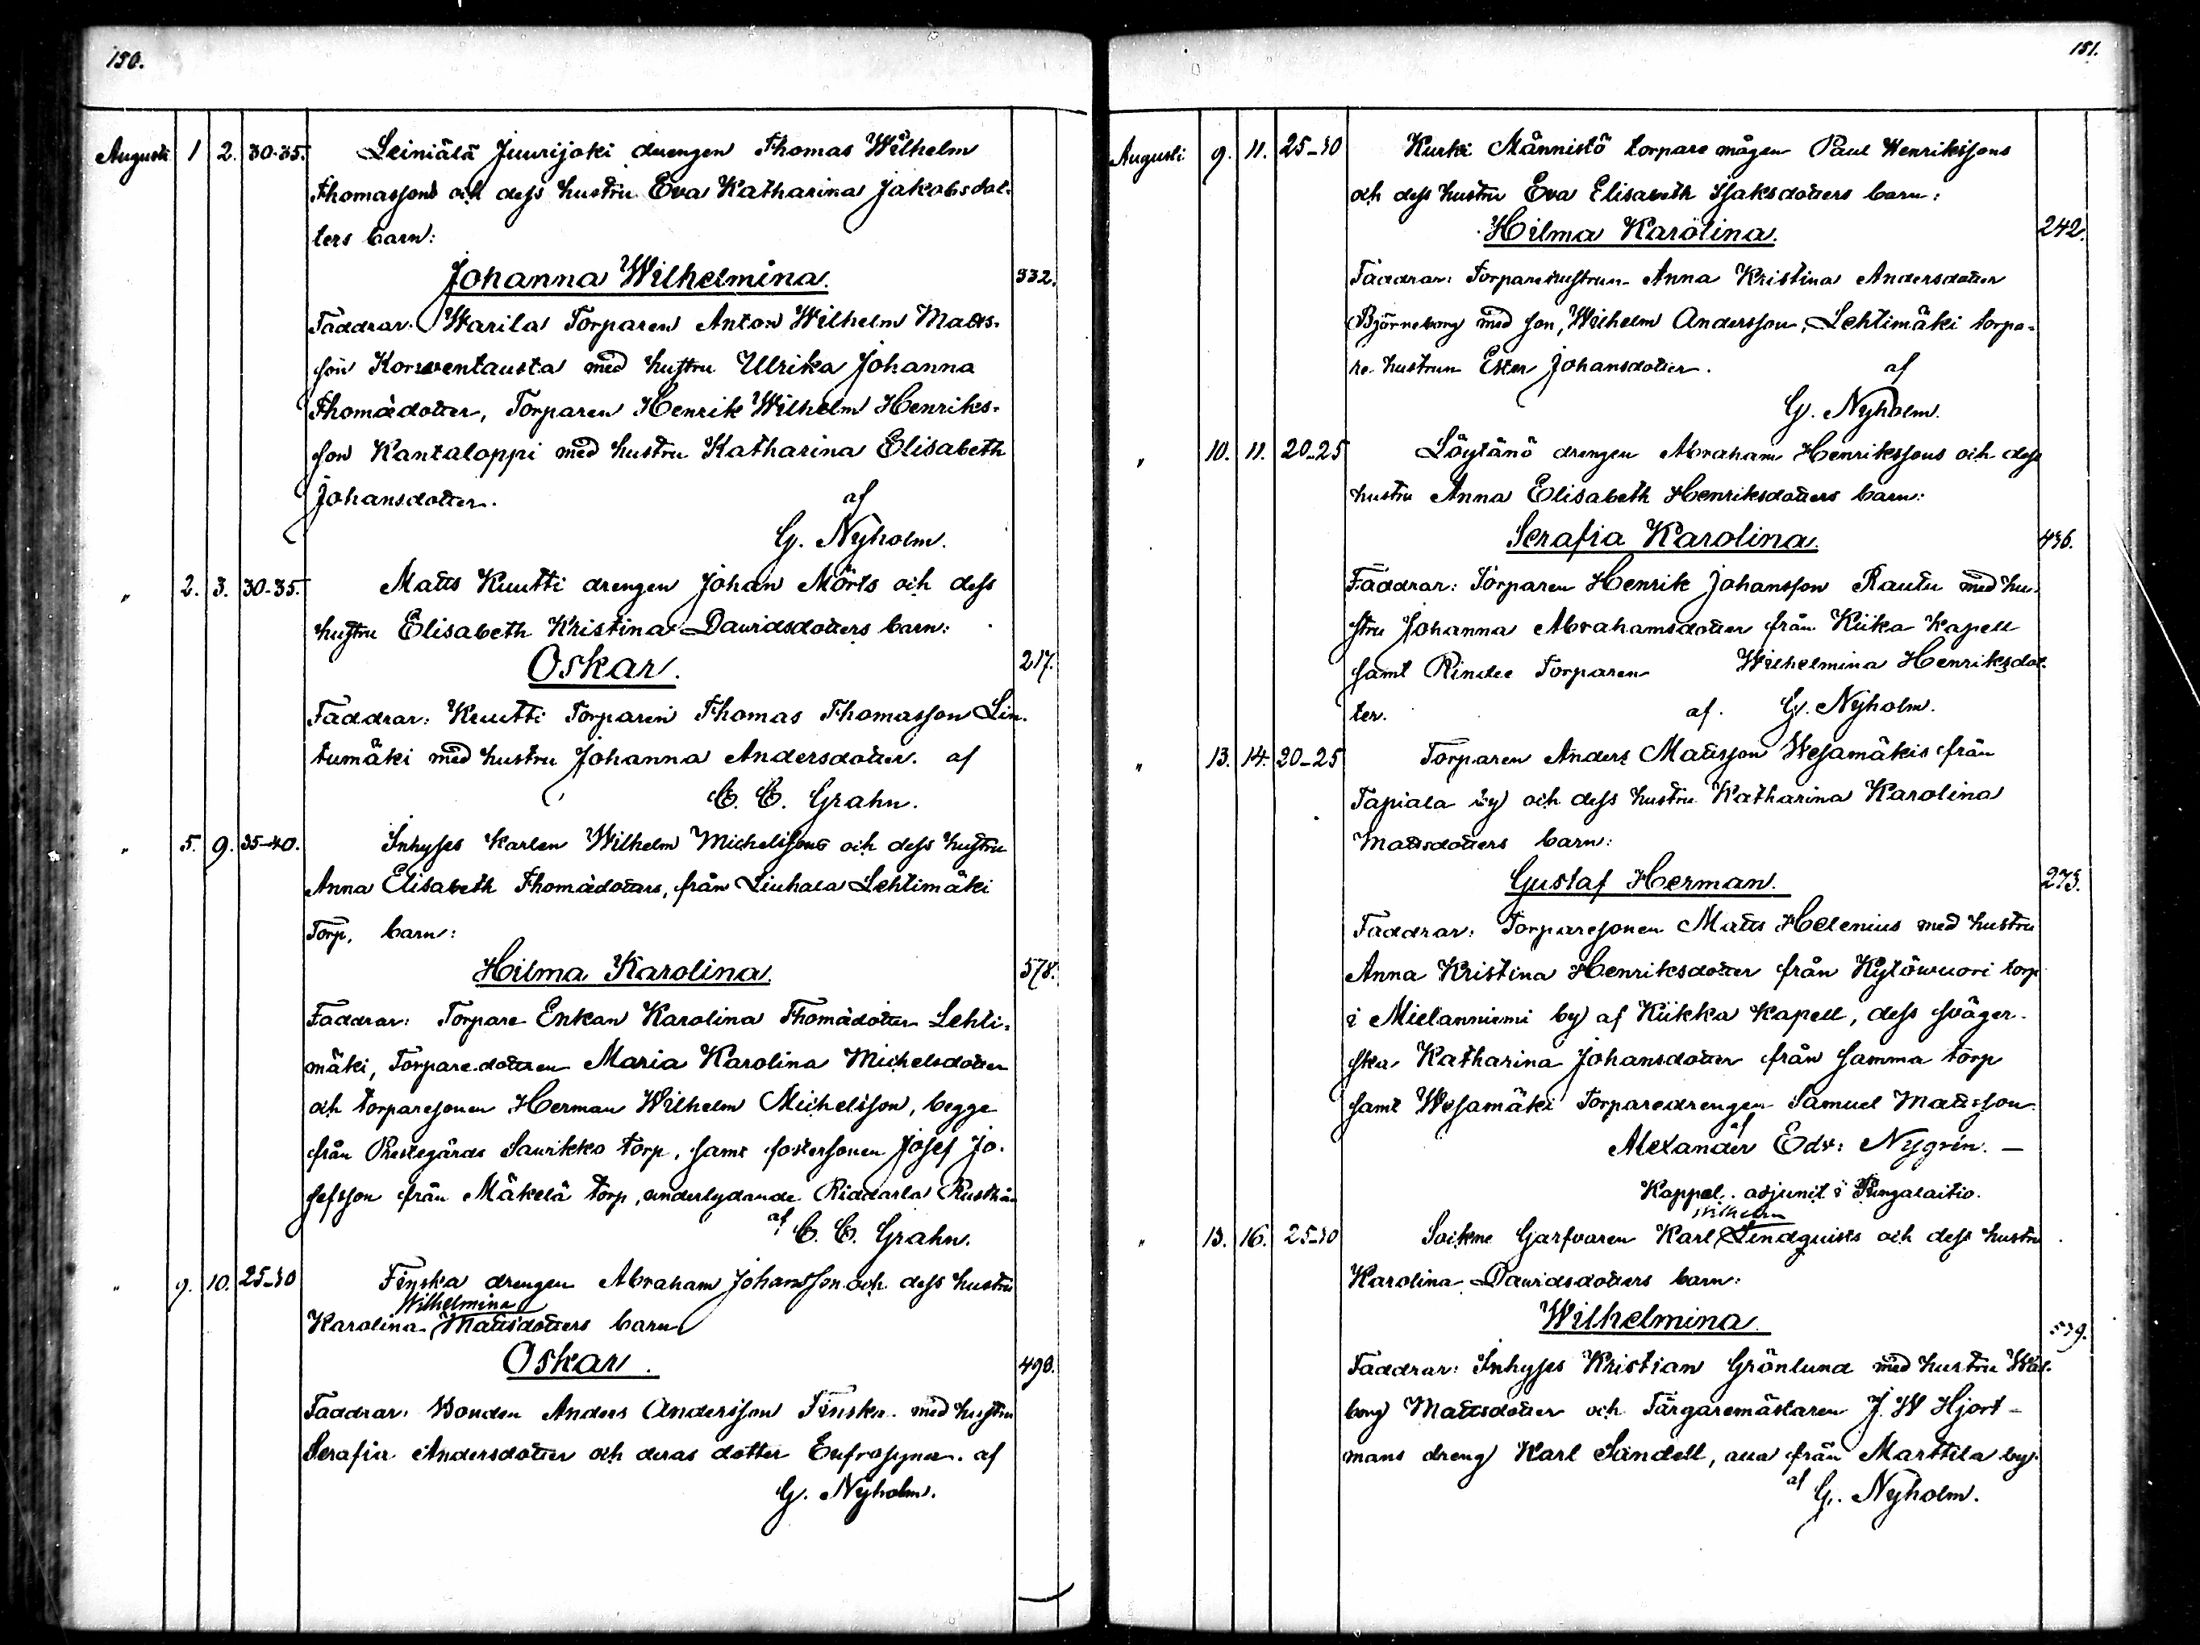 150.
Augusti 1 2. 30-35. Leiniälä Juurijoki drengen Thomas Wilhelm
Thomassons och dess hustru Eva Katharina Jakobsdot-
ters barn:
Johanna Wilhelmina. 332.
Faddrar: Warila Torparen Anton Wilhelm Matts-
son Korwentausta med hustru Ulrika Johanna
Thomädotter, Torparen Henrik Wilhelm Henriks-
son Kantaloppi med hustru Katharina Elisabeth
Johansdotter. af
G. Nyholm.
" 2. 3. 30-35. Matts Kuutti drengen Johan Mörts och dess
hustru Elisabeth Kristina Dawidsdotters barn:
Oskar. 217.
Faddrar: Kuutti Torparen Thomas Thomasson Lin-
tumäki med hustru Johanna Andersdotter. af
C. C. Grahn.
" 5. 9. 35-40. Inhyses karlen Wilhelm Michelssons och dess hustru
Anna Elisabeth Thomädotters, från Liuhala Lehtimäki
Torp, barn:
Hilma Karolina. 578.
Faddrar: Torpare Enkan Karolina Thomädotter Lehti-
mäki, Torpare dottren Maria Karolina Michelsdotter
och torparesonen Herman Wilhelm Michelsson, begge
från Prestegårds Saurikko torp, samt fostersonen Josef Jo-
sefsson från Mäkelä torp, underlydande Riddarla
af C. C. Grahn.
" 9. 10. 25-30 Finska drengen Abraham Johansson och dess hustru
Wilhelmina
Karolina Mattsdotters barn
Oskar. 490.
Faddrar: Bonden Anders Andersson Finska med hustru
Serafia Andersdotter och deras dotter Eufrosyna. af
G. Nyholm.
151.
Augusti 9. 11. 25-30 Kurki Männistö torpare mågen Paul Henrikssons
och dess hustru Eva Elisabeth Isaksdotters barn:
Hilma Karolina. 242.
Faddrar: Torparehustrun Anna Kristina Andersdotter
Björneborg med son, Wilhelm Andersson, Lehtimäki torpa-
re hustrun Ester Johansdotter. af
G. Nyholm.
" 10. 11. 20-25 Löytänö drengen Abraham Henrikssons och dess
hustru Anna Elisabeth Henriksdotters barn:
Serafia Karolina. 436.
Faddrar: Torparen Henrik Johansson Rautu med hu-
stru Johanna Abrahamsdotter från Kiika Kapell
samt Rindee Torparen Wilhelmina Henriksdot-
ter. af. G. Nyholm.
" 13. 14. 20-25 Torparen Anders Mattsson Wesamäkis från
Tapiala by och dess hustru Katharina Karolina
Mattsdotters barn:
Gustaf Herman. 273.
Faddrar: Torparesonen Matts Helenius med hustru
Anna Kristina Henriksdotter från Kylöwuori torp
i Mielanniemi by af Kiikka Kapell, dess sväger-
ska Katharina Johansdotter från samma torp
samt Wesamäki Torparedrengen Samuel Mattsson
af
Alexander Edv: Nygrén. —
Kappel. adjunct i Pungalaitio.
Wilhelm
" 13. 16. 25-30 Soikme Garfvaren Karl Lindquists och dess hustru
Karolina Dawidsdotters barn:
Wilhelmina. 579.
Faddrar: Inhyses Kristian Grönlund med hustru Wal-
borg Mattsdotter och Färgaremästaren J. W Hjort-
mans dreng Karl Sandell, alla från Marttila by.
af G. Nyholm.